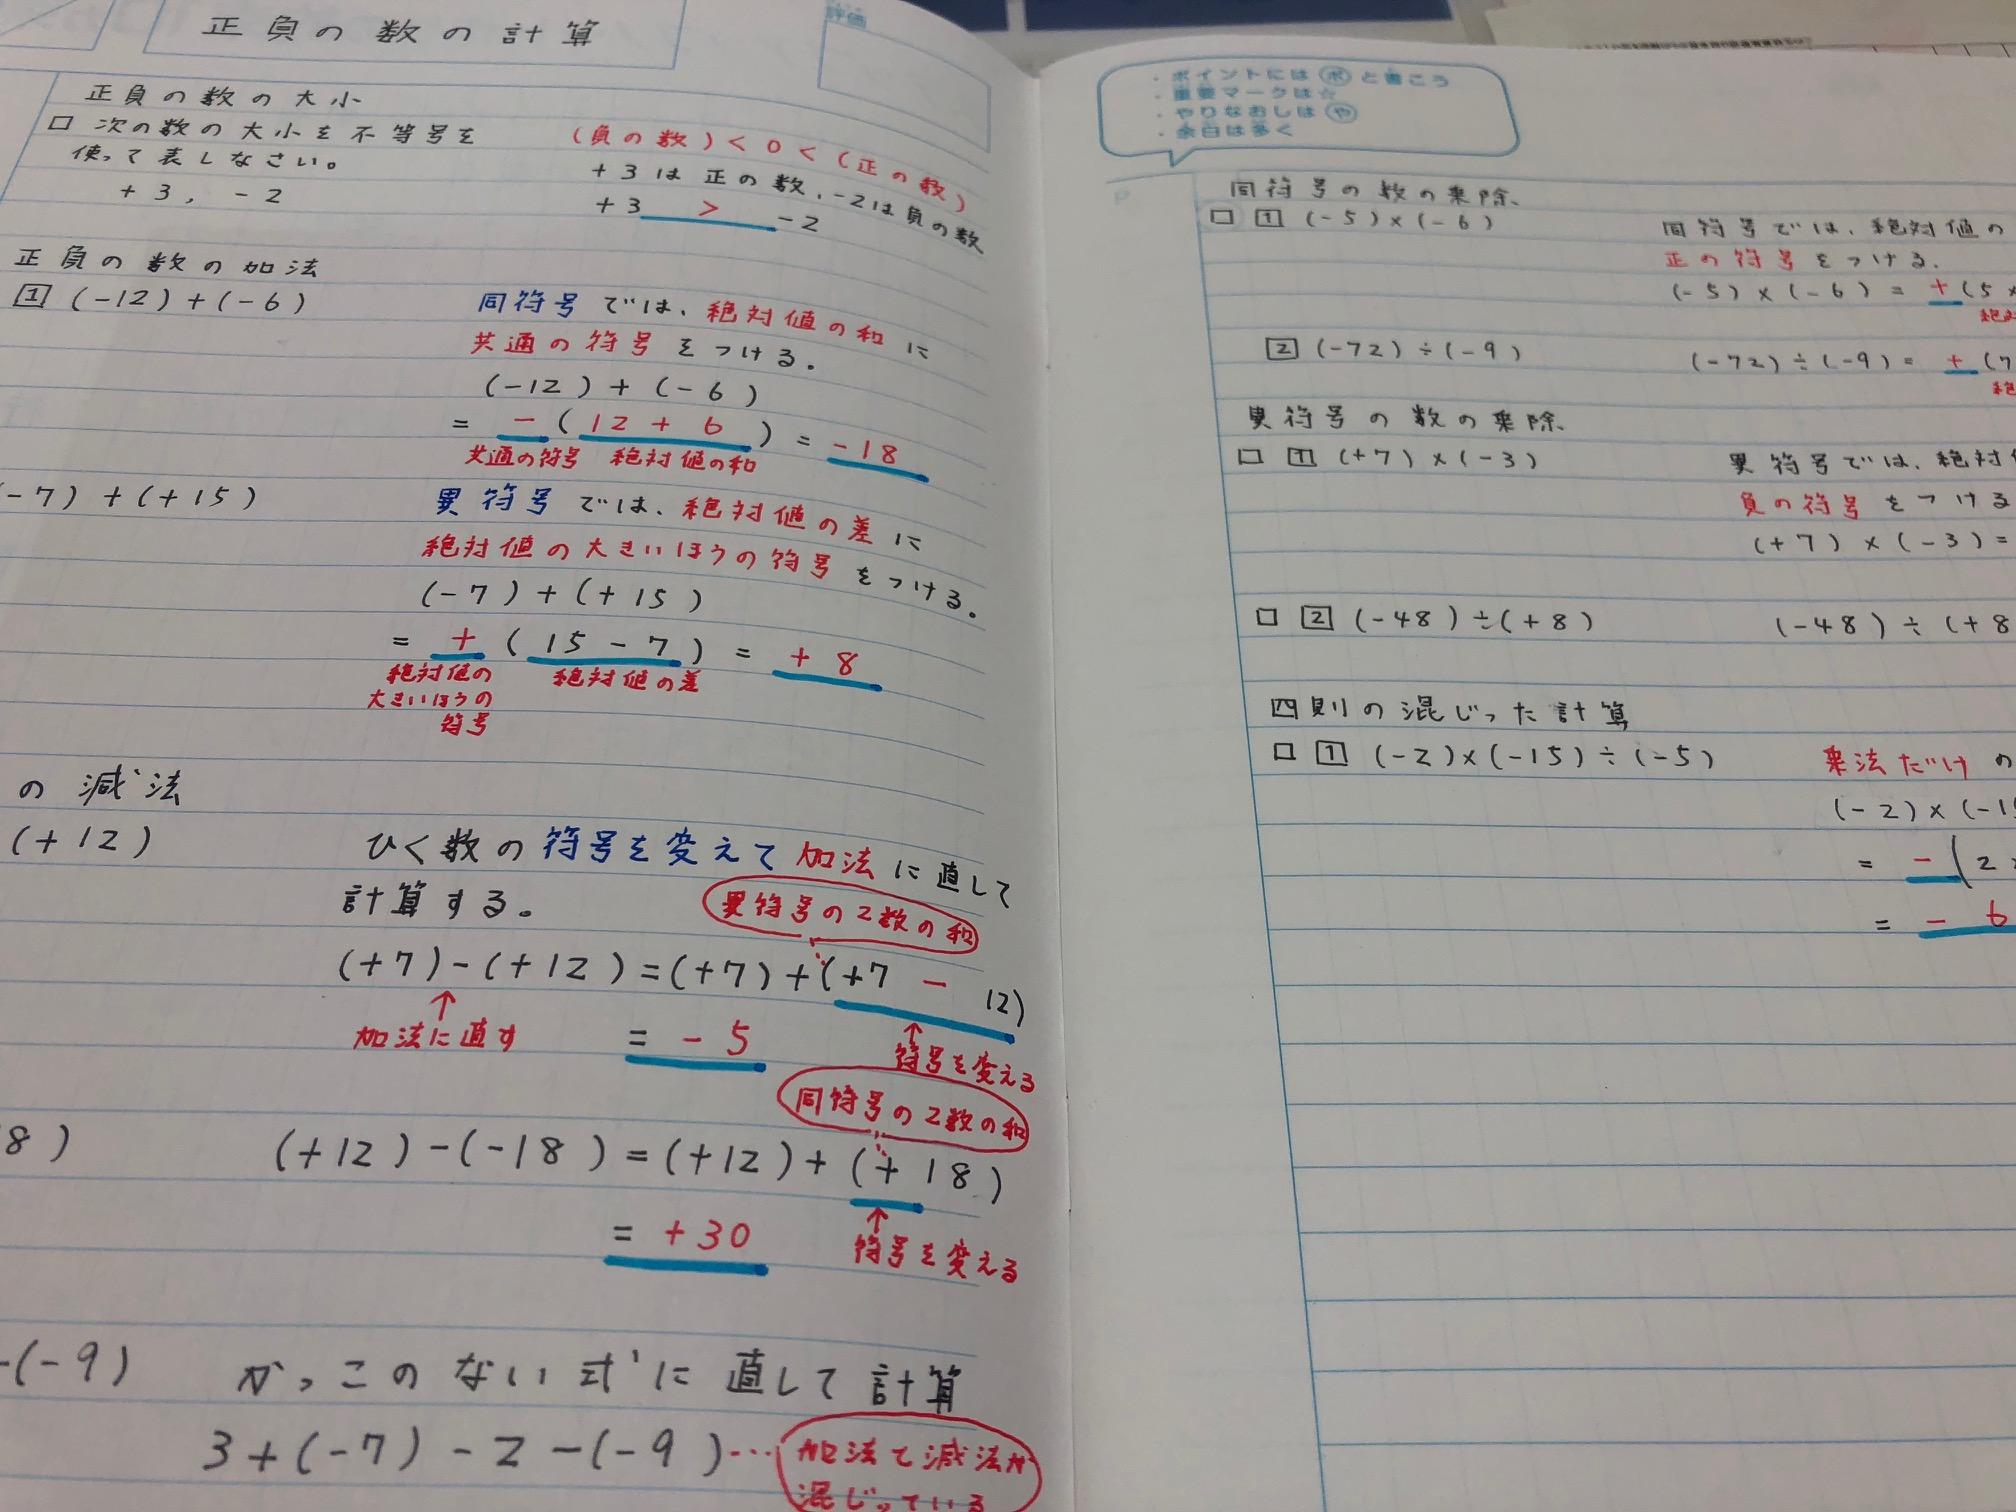 正負の数の計算
評価
正負の数の大小
□ 次の数の大小を不等号を
使って表しなさい。
+3, -2
(負の数)<0<(正の数)
+3は正の数、-2は負の数
+3 > -2
正負の数の加法
1 (-12)+(-6)
同符号では、絶対値の和に
共通の符号をつける。
(-12)+(-6)
= -(12+6) = -18
共通の符号 絶対値の和
-7)+(+15)
異符号では、絶対値の差に
絶対値の大きいほうの符号をつける。
(-7)+(+15)
= +(15-7) = +8
絶対値の
大きいほうの
符号
絶対値の差
の減法
(+12)
ひく数の符号を変えて加法に直して
計算する。
異符号の2数の和
(+7)-(+12)=(+7)+(+7 - 12)
加法に直す
= -5
符号を変える
同符号の2数の和
8)
(+12)-(-18)=(+12)+(+18)
= +30
符号を変える
-(-9)
かっこのない式に直して計算
3+(-7)-2-(-9)…
加法と減法が
混じっている
・ポイントにはポと書こう
・重要マークは☆
・やりなおしはや
・余白は多く
同符号の数の乗除
□ 1 (-5)×(-6)
同符号では、絶対値の
正の符号をつける.
(-5)×(-6) = +(5×
2 (-72)÷(-9)
(-72)÷(-9)= +(7
異符号の数の乗除
□ 1 (+7)×(-3)
異符号では、絶対
負の符号をつける
(+7)×(-3)=
□ 2 (-48)÷(+8)
(-48)÷(+8
四則の混じった計算
□ 1 (-2)×(-15)÷(-5)
乗法だけの
(-2)×(-15
= -(2
= -6